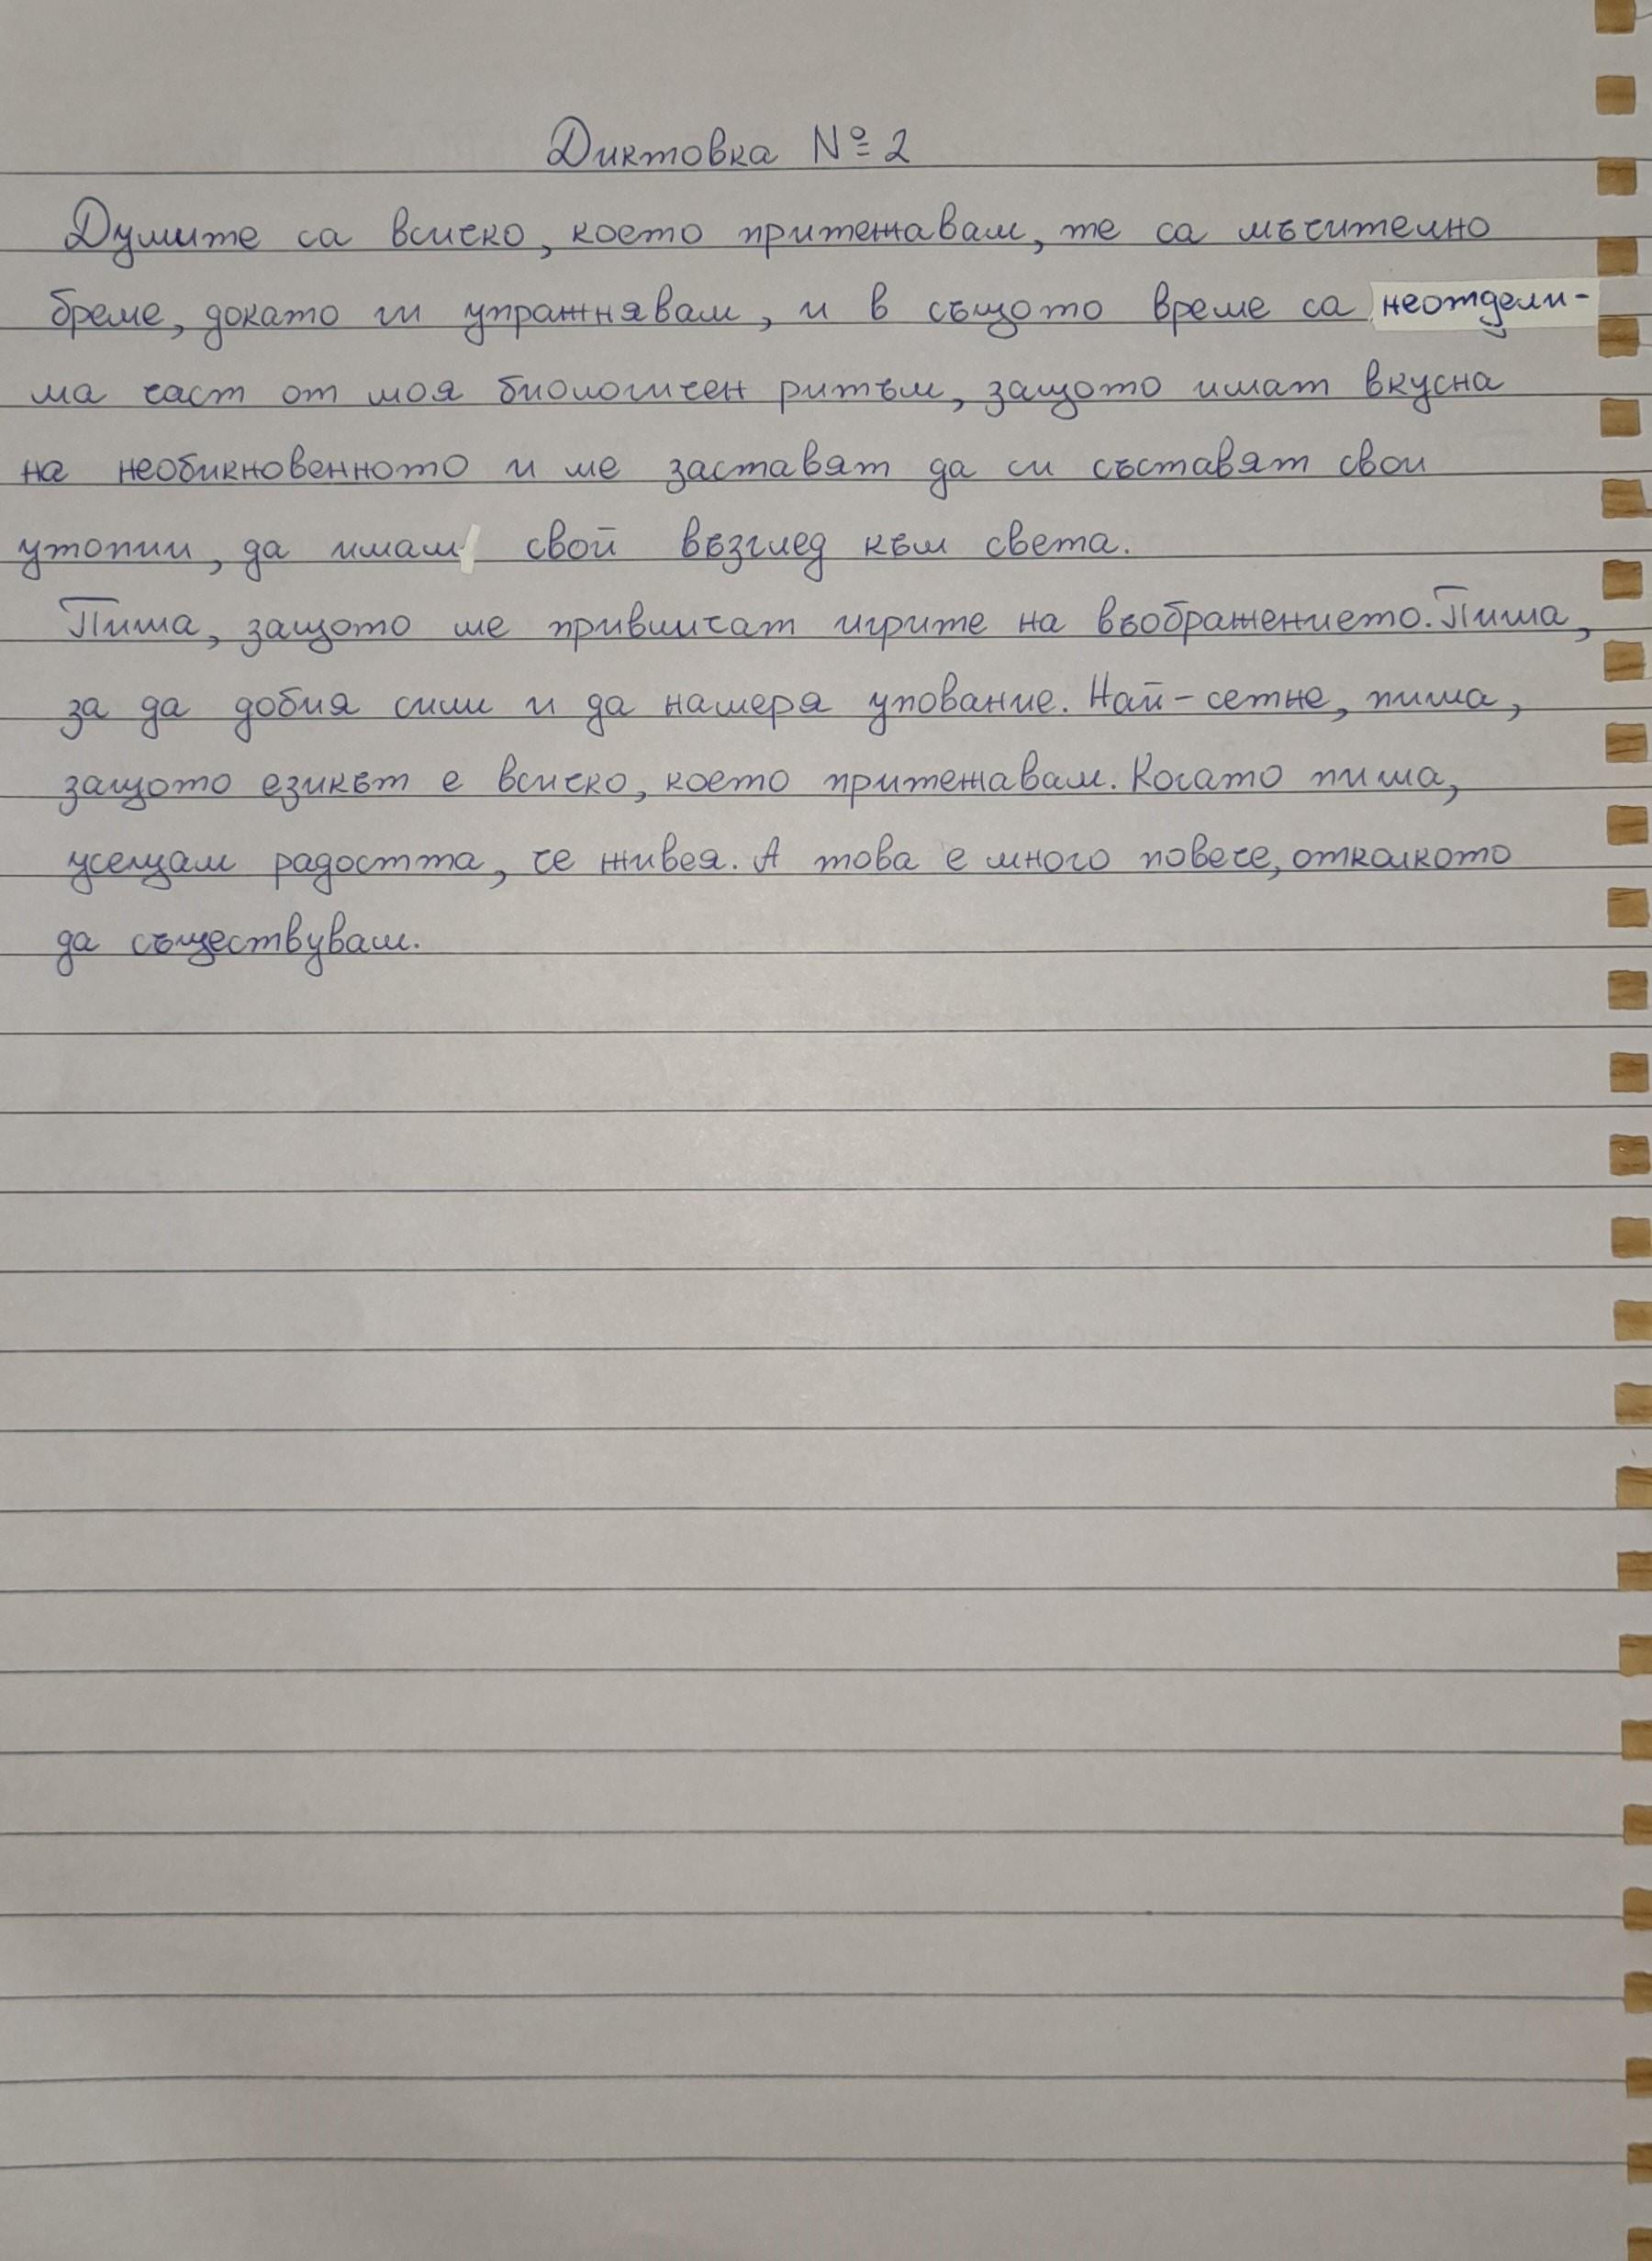 Диктовка № 2
Думите са всичко, което притежавам, те са мъчително
бреме, докато ги упражнявам, и в същото време са неотдели-
ма част от моя биологичен ритъм, защото имат вкусна
на необикновенното и ме заставят да си съставят свои
утопии, да имам свой възглед към света.
Пиша, защото ме привличат игрите на въображението. Пиша,
за да добия сили и да намеря упование. Най-сетне, пиша,
защото езикът е всичко, което притежавам. Когато пиша,
усещам радостта, че живея. А това е много повече, отколкото
да съществувам.